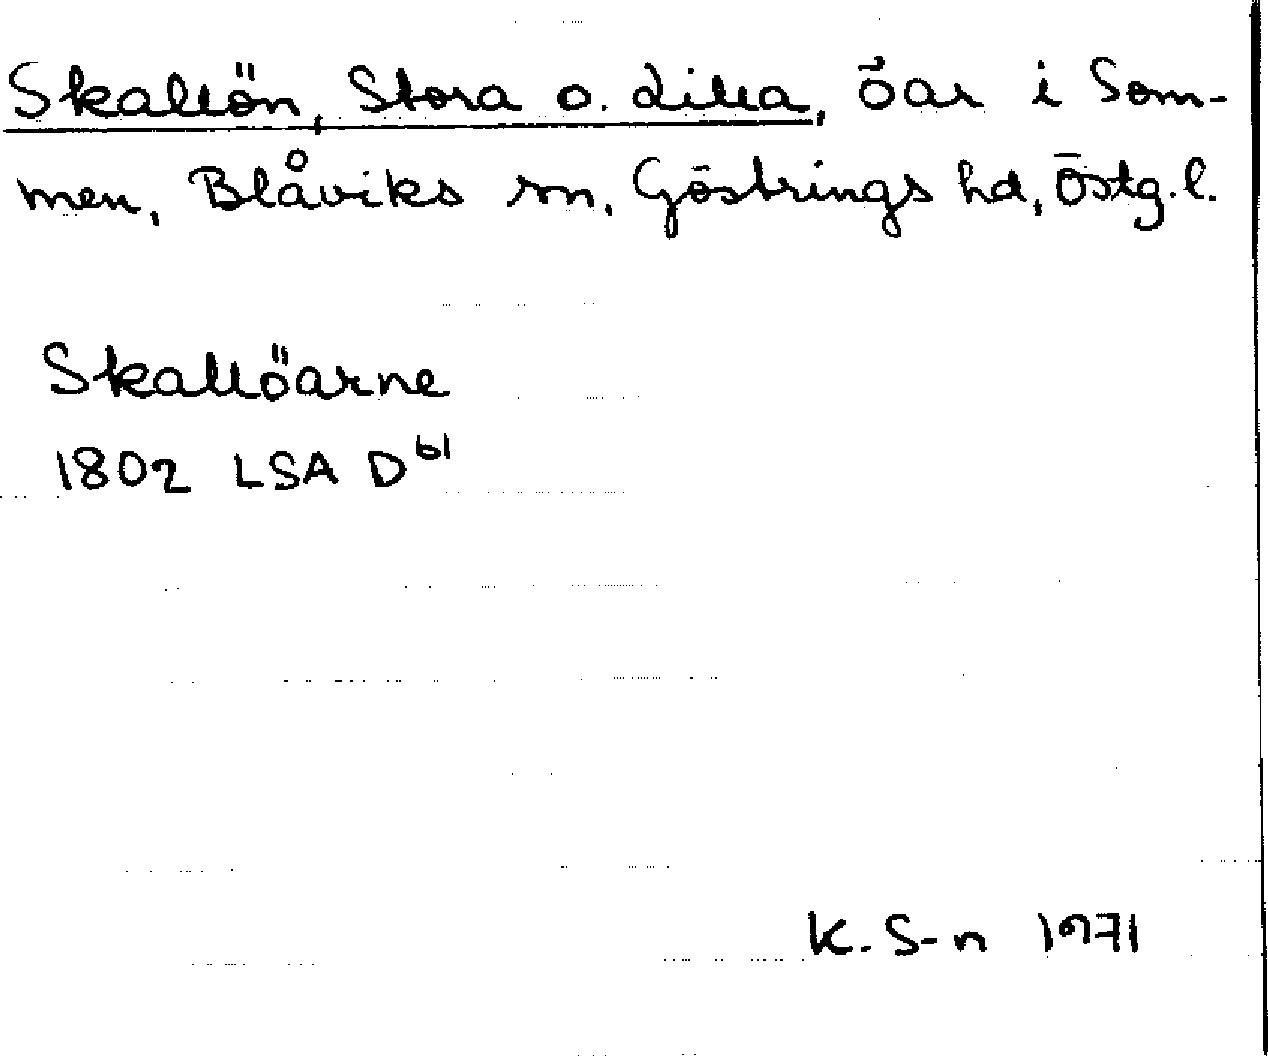 Skallön, Stora o. Lilla, öar i Som-
men, Blåviks sn, Göstrings hd, Östg.l.
Skallöarne
1802 LSA D61
K. S-n 1971